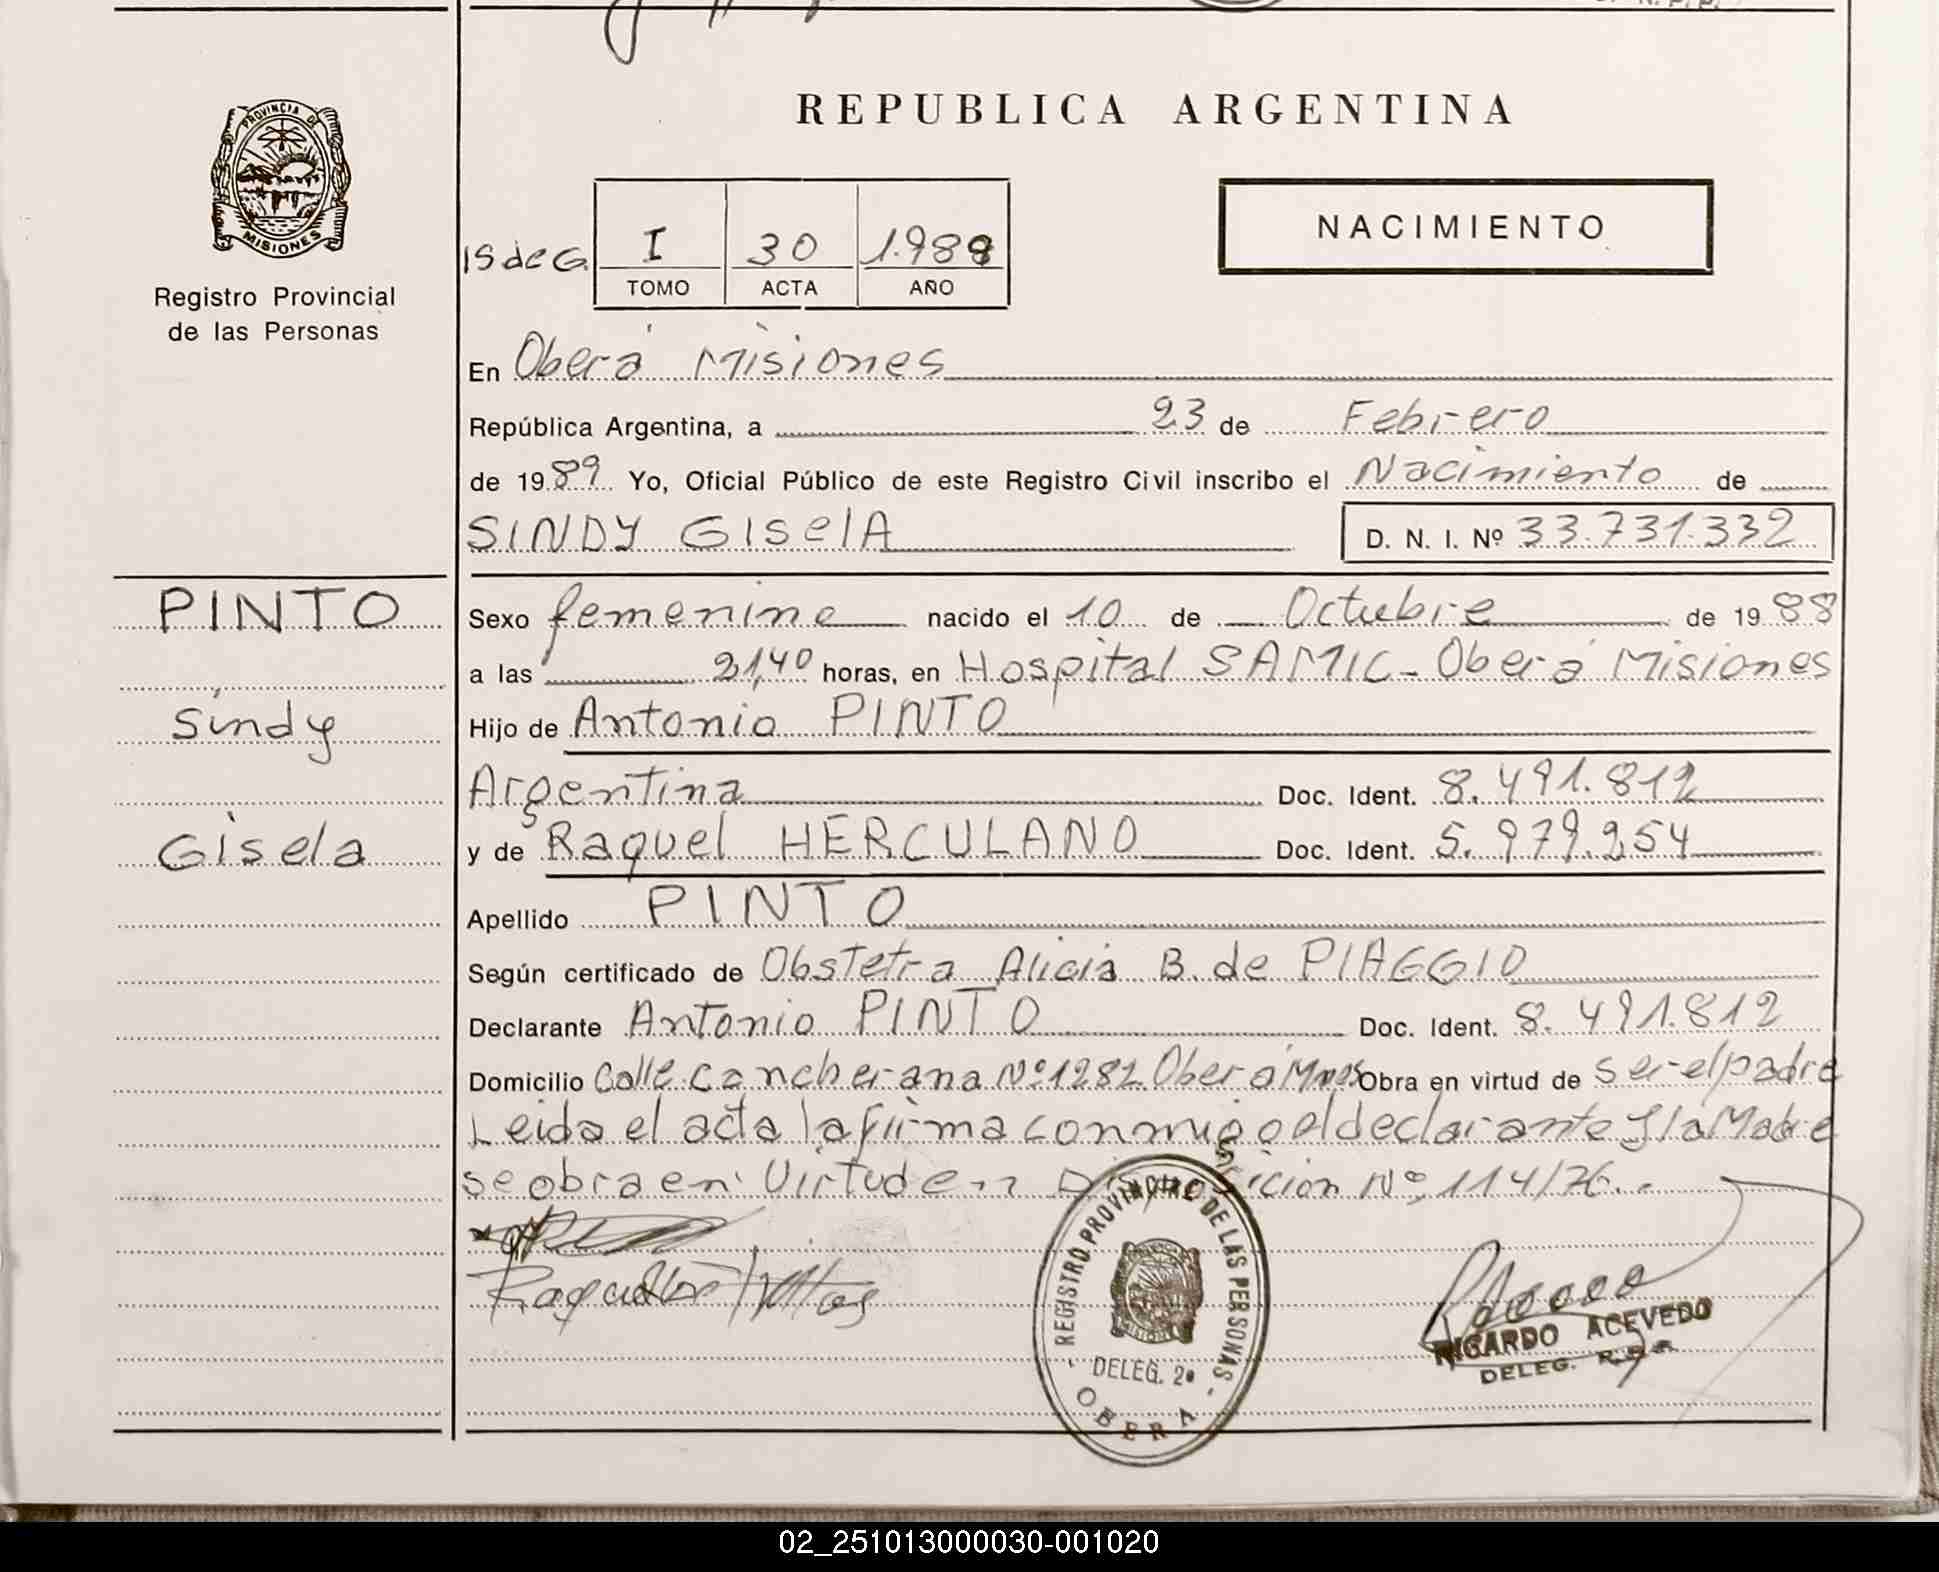 REPUBLICA ARGENTINA
PROVINCIA DE
MISIONES
Registro Provincial
de las Personas
15 de G. I 30 1.989
TOMO ACTA AÑO
NACIMIENTO
En Oberá Misiones
República Argentina, a 23 de Febrero
de 1989 Yo, Oficial Público de este Registro Civil inscribo el Nacimiento de
SINDY GISelA D. N. I. Nº 33.731.332
PINTO
Sindy
Gisela
Sexo femenino nacido el 10 de Octubre de 1988
a las 21,40 horas, en Hospital SAMIC - Oberá Misiones
Hijo de Antonio PINTO
Argentina Doc. Ident. 8.491.812
y de Raquel HERCULANO Doc. Ident. 5.979.254
Apellido PINTO
Según certificado de Obstetra Alicia B. de PIAGGIO
Declarante Antonio PINTO Doc. Ident. 8.491.812
Domicilio Calle cancherana Nº 1282 Oberá Mnes Obra en virtud de ser el padre
Leida el acta la firma conmigo el declarante y la Madre
se obra en Virtud en Disposicion Nº 114/76..
REGISTRO PROVINCIAL DE LAS PERSONAS
DELEG. 2ª
OBERA
RICARDO ACEVEDO
DELEG. R.P.P.
02_251013000030-001020